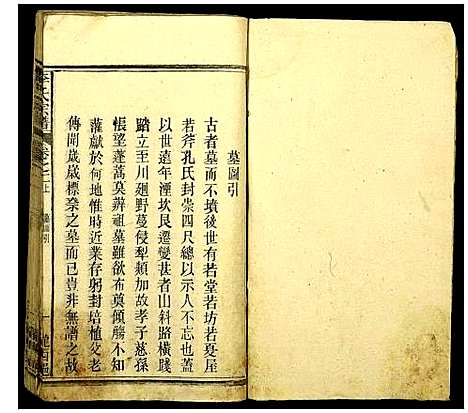 墓圖引
古者墓而不墳後世有若堂若坊若夏屋
若斧孔氏封崇四尺總以示人不忘也蓋
以世遠年湮坎艮遷變甚者山斜路橫踐
踏立至川廻野蔓侵犁類加故孝子慈孫
悵望蓬蒿莫辨祖墓雖欲布奠傾觴不知
灌獻於何地惟時近業存躬封培植父老
傳聞歲歲標祭之墓而已豈非無譜之故
李氏宗譜
卷之二上
墓圖引
一